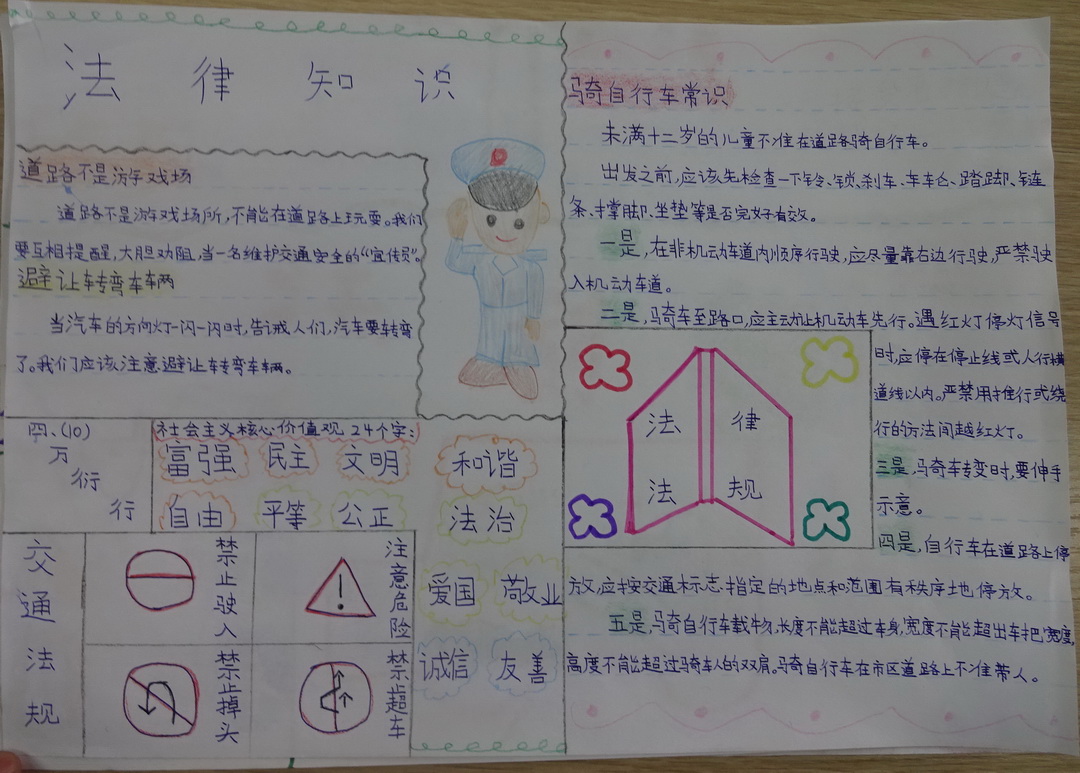 法律知识
道路不是游戏场
道路不是游戏场所,不能在道路上玩耍。我们
要互相提醒,大胆劝阻,当一名维护交通安全的“宣传员”。
避让车转弯车辆
当汽车的方向灯一闪一闪时,告诫人们,汽车要转弯
了。我们应该注意避让车转弯车辆。
四、(10)
万
衍
行
社会主义核心价值观24个字:
富强 民主 文明 和谐
自由 平等 公正 法治
爱国 敬业
诚信 友善
交通法规
禁止驶入
注意危险
禁止掉头
禁止超车
骑自行车常识
未满十二岁的儿童不准在道路骑自行车。
出发之前,应该先检查一下铃、锁、刹车、车轮、踏脚、链
条、撑脚、坐垫等是否完好有效。
一是,在非机动车道内顺序行驶,应尽量靠右边行驶,严禁驶
入机动车道。
二是,骑车至路口,应主动让机动车先行。遇红灯停灯信号
时,应停在停止线或人行横
道线以内。严禁用推行或绕
行的方法闯越红灯。
三是,骑车转变时,要伸手
示意。
四是,自行车在道路上停
放,应按交通标志指定的地点和范围有秩序地停放。
五是,骑自行车载物,长度不能超过车身,宽度不能超出车把宽度,
高度不能超过骑车人的双肩。骑自行车在市区道路上不准带人。
法律
法规